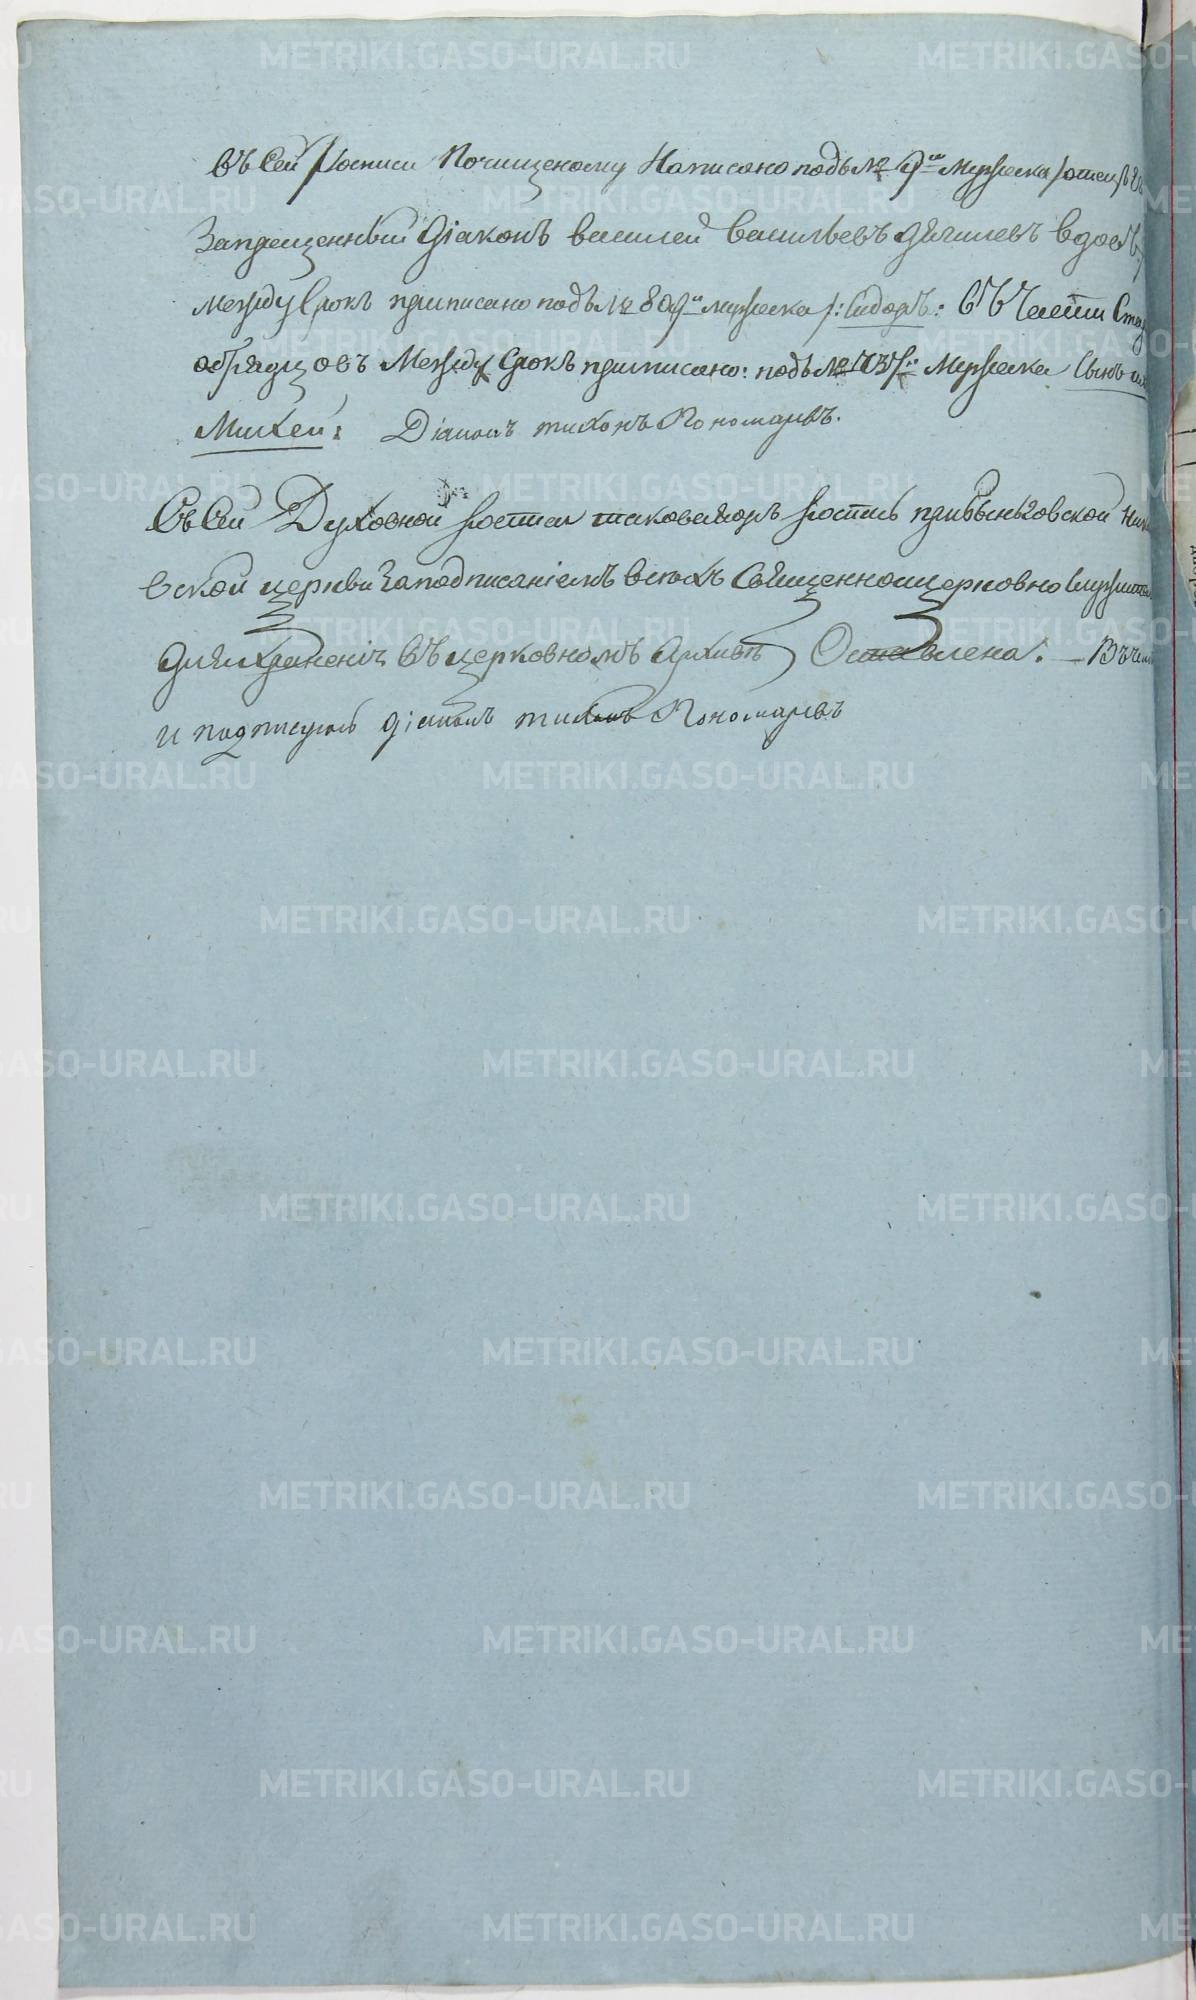 въ сей росписи почищеному написано подъ № 9м мужеска
Запрещенный діаконъ василей васильевъ вдовъ
Между строкъ приписано подъ № 809м мужеска /:Сидоръ: въ части Ста
обрядцовъ Между строкъ приписано: подъ № мужеска сынъ
Михей: Діаконъ тихонъ Пономаревъ.
Съ сей Духовной росписи таковаяжъ роспись при Быньговской
вской церкви заподписаніемъ всехъ священноицерковно служит
дляхраненія въ церковномъ Архивѣ Оставлена. —
и подписуюсь діаконъ тихонъ Пономаревъ
METRIKI.GASO-URAL.RU